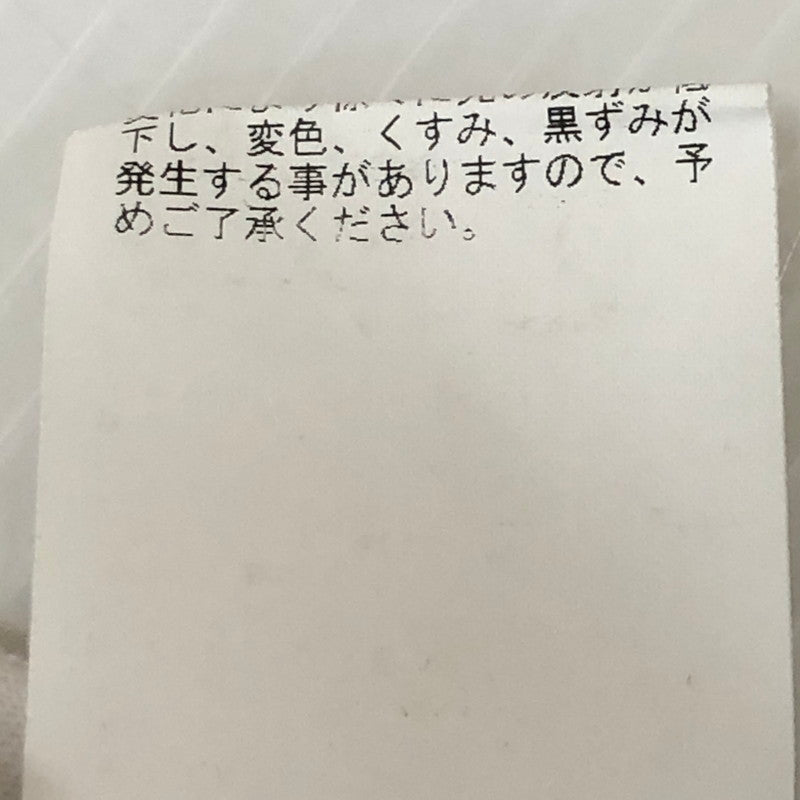 下し、変色、くすみ、黒ずみが
発生する事がありますので、予
めご了承ください。